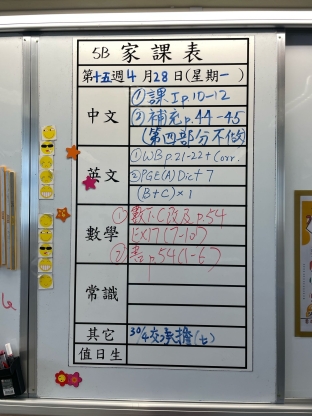 5B 家課表
第十五週 4 月 28 日(星期一)
中文
①課工p.10-12
②補充p.44-45
(第四部分不做)
英文
①WB p.21-22 + Corr.
②PGE(A) Dict 7
(B+C)×1
數學
①數下C改及p.54
EX17(7-10)
②書p.54(1-6)
常識
其它
30/4交承擔(七)
值日生